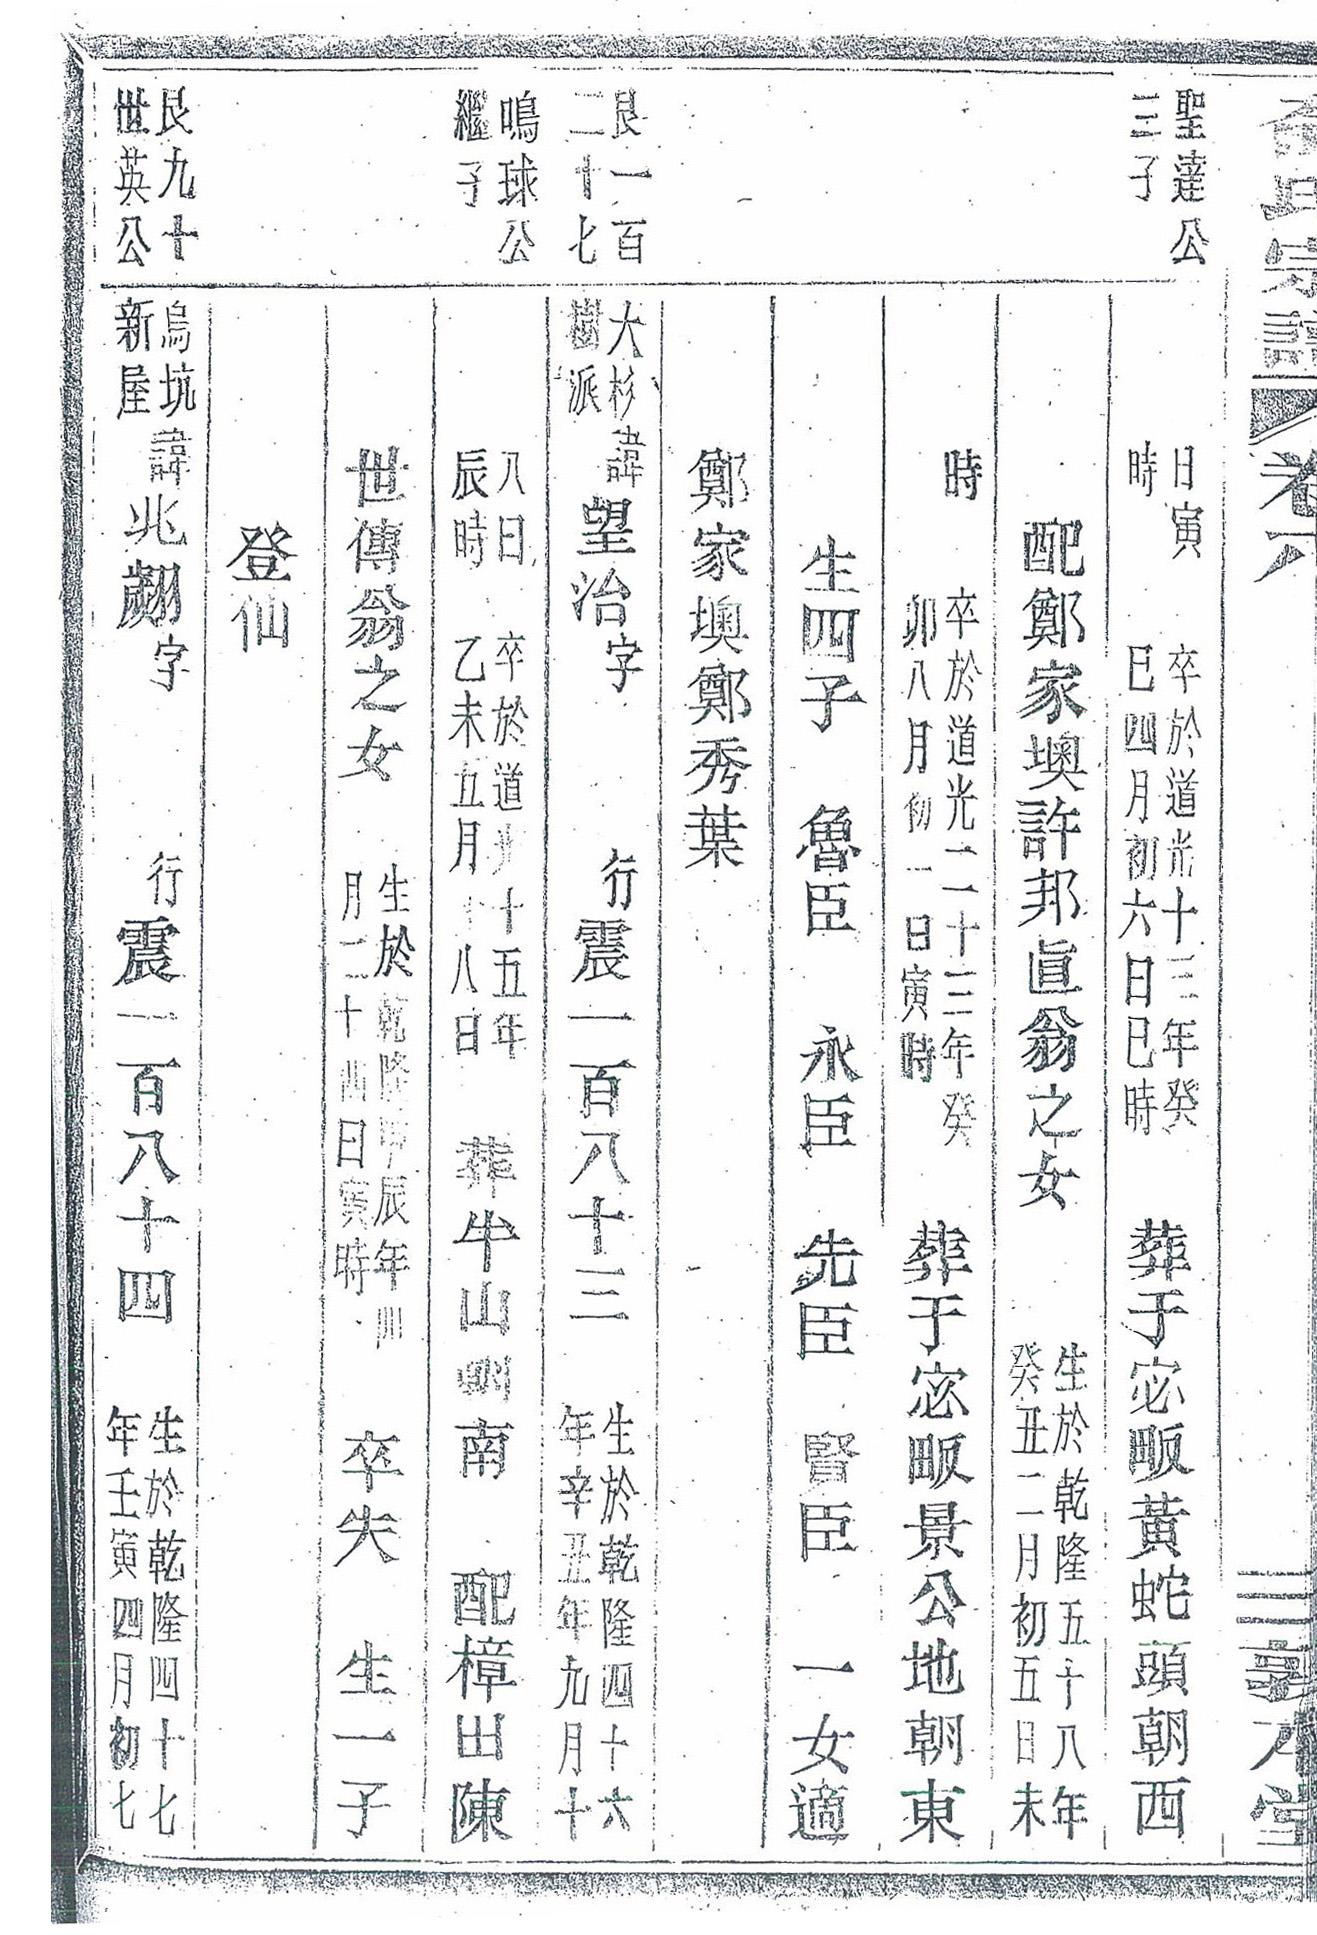 氏宗譜 卷六 敦本堂
聖達公
三子
日寅
時
卒於道光十三年癸
巳四月初六日巳時
葬于宓畈黃蛇頭朝西
配鄭家墺許邦眞翁之女
生於乾隆五十八年
癸丑二月初五日未
時
卒於道光二十三年癸
卯八月初一日寅時
葬于宓畈景公地朝東
生四子 魯臣 永臣 先臣 賢臣 一女適
鄭家墺鄭秀葉
艮一百
二十七
大杉
樹派
諱望治字 行震一百八十三
生於乾隆四十六
年辛丑年九月十
鳴球公
繼子
八日
辰時
卒於道光十五年
乙未五月十八日
葬牛山朝南 配樟出陳
世傳翁之女
生於乾隆甲辰年
月二十四日寅時
卒失 生一子
登仙
艮九十
世英公
烏坑
新屋
諱兆翽字 行震一百八十四
生於乾隆四十七
年壬寅四月初七